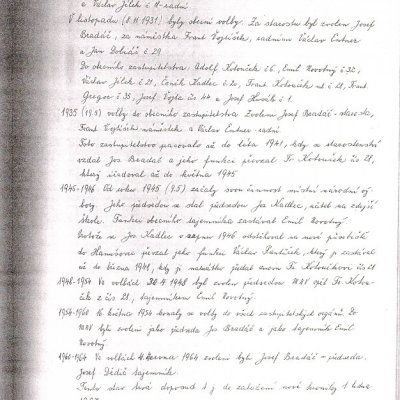 a Václav Jílek č 11 - radní
V listopadu (8. 11 1931) byly obecní volby. Za starostu byl zvolen Josef
Bradáč, za náměstka Frant Vojtíšek, radními Václav Entner
a Jan Doležal č 29
Do obecního zastupitelstva Adolf Kotouček č 6, Emil Novotný č 32,
Václav Jílek č 21, Čeněk Kadlec č 20, Frant Kotouček čd 21, Frant.
Gregor č 33, Josef Vojta čs 44 a Josef Novák č 1.
1935 (19.5) volby do obecního zastupitelstva Zvolen Josef Bradáč - starosta,
Frant Vojtíšek náměstek a Václav Entner - radní
Toto zastupitelstvo pracovalo až do léta 1941, kdy se starostenství
vzdal Jos Bradáč a jeho funkci převzal Fr Kotouček čs 21,
který úřadoval až do května 1945
1945-1946 Od roku 1945 (9.5) začaly svou činnost místní národní vý
bory. Jeho předsedou se stal předsedou Jos Kadlec, učitel na zdejší
škole. Funkci obecního tajemníka zastával Emil Novotný.
Protože se Jos Kadlec v srpnu 1946 odstěhoval na nové působiště
do převzal jeho funkci Václav který ji zastával
až do března 1941, kdy ji nakrátko předal znovu Fr Kotoučkovi čs 21
1948-1954 Ve volbách 30 4 1948 byl zvolen předsedou MNV opět Fr Kotou-
ček z čs 21, tajemníkem Emil Novotný.
1954-1960 16 května 1954 konaly se volby do všech zastupitelských orgánů. Do
MNV byli zvoleni jako předseda Jos Bradáč a jeho tajemník Emil
Novotný
1960-1964 Ve volbách 4. června 1964 zvoleni byli Josef Bradáč - předseda.
Josef Dědič tajemník.
Tento stav trvá doposud t j do založení nové kroniky 1 ledna